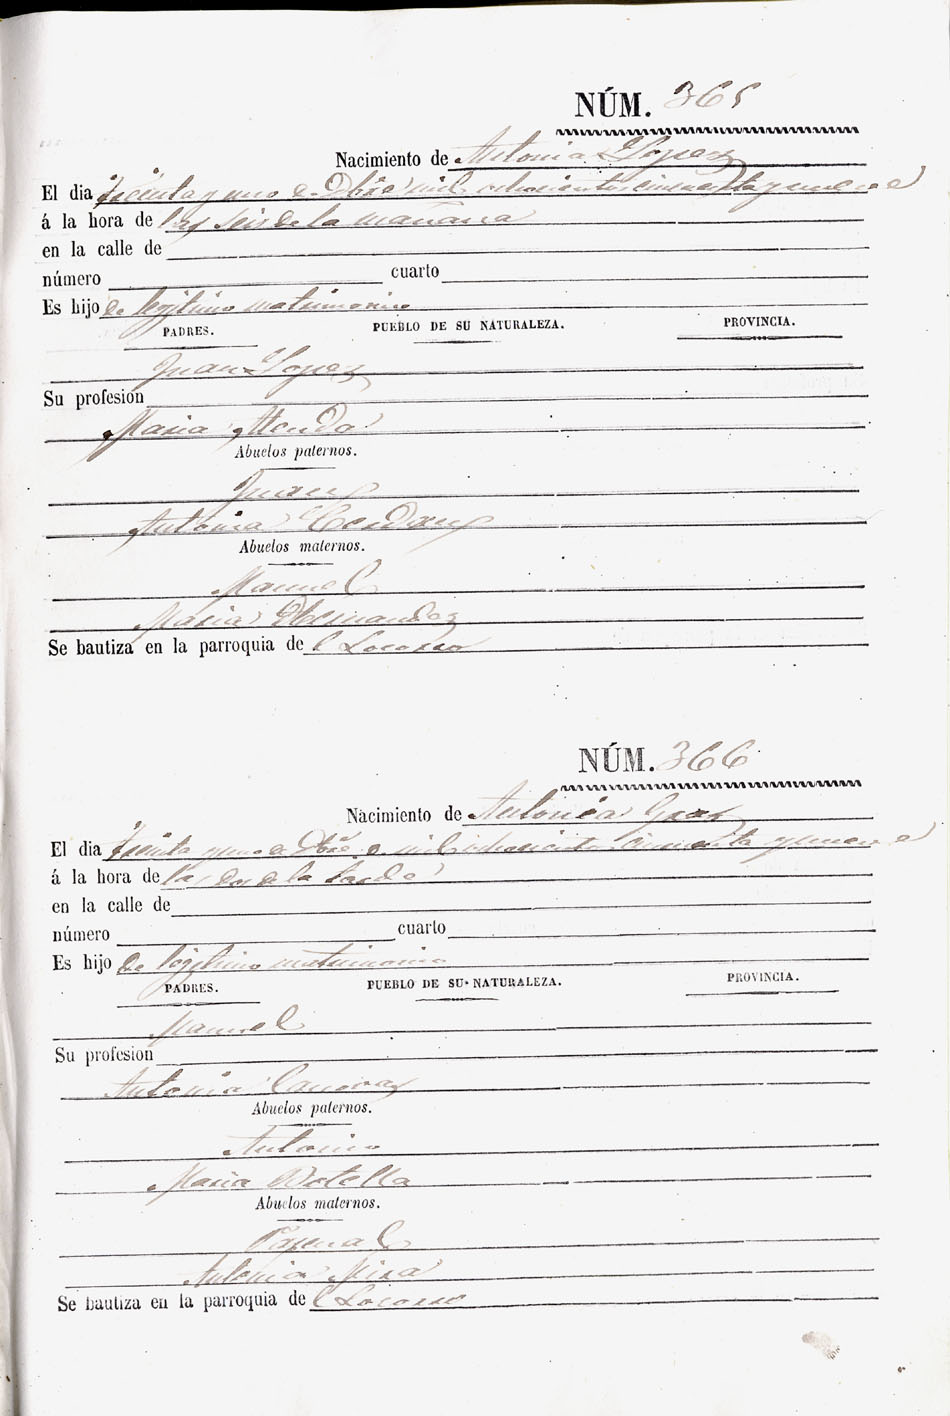 NÚM. 365
Nacimiento de Antonia Lopez
El dia treinta y uno de Dbre mil ochocientos cincuenta y nueve
á la hora de las seis de la mañana
en la calle de
número cuarto
Es hijo de legitimo matrimonio
PADRES. PUEBLO DE SU NATURALEZA. PROVINCIA.
Juan Lopez
Su profesion
Maria
Abuelos paternos.
Juan
Antonia Cerdan
Abuelos maternos.
Manuel
Maria Hernandez
Se bautiza en la parroquia de l Socorro
NÚM. 366
Nacimiento de Antonia Gras
El dia treinta y uno de Dbre de mil ochocientos cincuenta y nueve
á la hora de las dos de la tarde
en la calle de
número cuarto
Es hijo de legitimo matrimonio
PADRES. PUEBLO DE SU NATURALEZA. PROVINCIA.
Manuel
Su profesion
Antonia Canovas
Abuelos paternos.
Antonio
Maria Botella
Abuelos maternos.
Pascual
Antonia Mira
Se bautiza en la parroquia de l Socorro